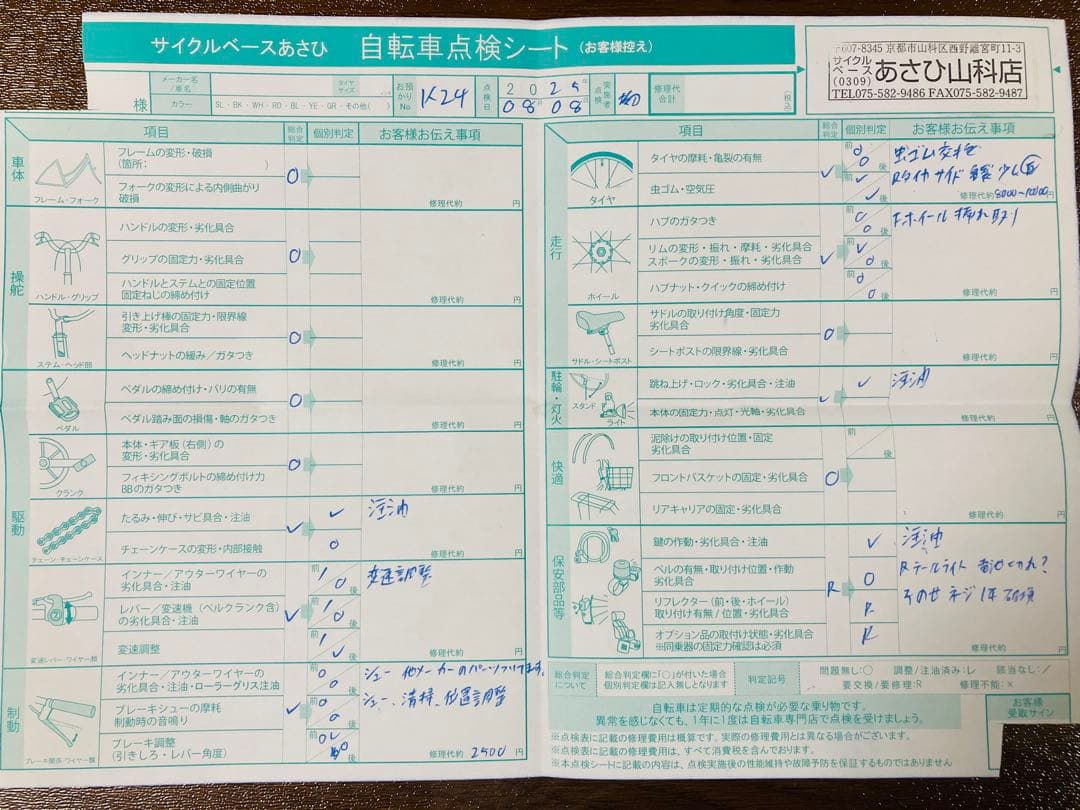 サイクルベースあさひ 自転車点検シート(お客様控え)
〒607-8345 京都市山科区西野離宮町11-3
サイクルベース あさひ山科店
(0309) TEL075-582-9486 FAX075-582-9487
様
メーカー名/車名
タイヤサイズ
インチ
カラー SL・BK・WH・RD・BL・YE・GR・その他( )
お預かりNo K24
点検日 2025年08月08日
点検実施者
修理代合計 (税込)
項目 総合判定 個別判定 お客様お伝え事項
車体
フレーム・フォーク
フレームの変形・破損
(箇所: )
フォークの変形による内側曲がり
破損
○
修理代約 円
操舵
ハンドル・グリップ
ハンドルの変形・劣化具合
グリップの固定力・劣化具合
○
ハンドルとステムとの固定位置
固定ねじの締め付け
修理代約 円
ステム・ヘッド部
引き上げ棒の固定力・限界線
変形・劣化具合
○
ヘッドナットの緩み/ガタつき
修理代約 円
駆動
ペダル
ペダルの締め付け・バリの有無
○
ペダル踏み面の損傷・軸のガタつき
修理代約 円
クランク
本体・ギア板(右側)の
変形・劣化具合
○
フィキシングボルトの締め付け力
BBのガタつき
修理代約 円
チェーン・チェーンケース
たるみ・伸び・サビ具合・注油 レ 注油
レ
チェーンケースの変形・内部接触 ○
修理代約 円
変速レバー・ワイヤー類
インナー/アウターワイヤーの
劣化具合・注油 前 / ○ 後 変速調整
レバー/変速機(ベルクランク含)
の劣化具合・注油 レ / ○
変速調整 前 / レ 後
修理代約 円
制動
ブレーキ関係 ワイヤー類
インナー/アウターワイヤーの
劣化具合・注油・ローラーグリス注油 前 ○ ○ 後 シュー 他メーカーのパーツついてます。
ブレーキシューの摩耗
制動時の音鳴り レ ○ ○ シュー、清掃、位置調整
ブレーキ調整
(引きしろ・レバー角度)
修理代約 2500 円
項目 総合判定 個別判定 お客様お伝え事項
走行
タイヤ
タイヤの摩耗・亀裂の有無 前 ○ ○ 後 虫ゴム交換
レ
虫ゴム・空気圧 前 レ レ 後 Rタイヤサイド 亀裂 少し
修理代約 8000〜10000 円
ホイール
ハブのガタつき 前 ○ ○ 後 Fホイール 振れ取り
リムの変形・振れ・摩耗・劣化具合
スポークの変形・振れ・劣化具合 レ 前 レ ○ 後
ハブナット・クイックの締め付け 前 ○ ○ 後
修理代約 円
サドル・シートポスト
サドルの取り付け角度・固定力
劣化具合
○
シートポストの限界線・劣化具合
修理代約 円
駐輪・灯火
スタンド
ライト
跳ね上げ・ロック・劣化具合・注油 レ 注油
レ
本体の固定力・点灯・光軸・劣化具合
修理代約 円
快適
泥除けの取り付け位置・固定
劣化具合 前 後
フロントバスケットの固定・劣化具合 ○
リアキャリアの固定・劣化具合
修理代約 円
保安部品等
鍵の作動・劣化具合・注油 レ 注油
ベルの有無・取り付け位置・作動
劣化具合 R ○ Rテールライト 電池切れ?
リフレクター(前・後・ホイール)
取り付け有無/位置・劣化具合 R
オプション品の取付け状態・劣化具合
※同乗器の固定力確認は必須 R
修理代約 円
総合判定について 総合判定欄に「○」が付いた場合
個別判定欄は記入無しとなります
判定記号 問題無し:○ 調整/注油済み:レ 該当なし:/
要交換/要修理:R 修理不能:×
自転車は定期的な点検が必要な乗り物です。
異常を感じなくても、1年に1度は自転車専門店で点検を受けましょう。
お客様受取サイン
※点検表に記載の修理費用は概算です。実際の修理費用とは異なる場合がございます。
※点検表に記載の修理費用は、すべて消費税を含んでおります。
※本点検シートに記載の内容は、点検実施後の性能維持や故障予防を保証するものではありません